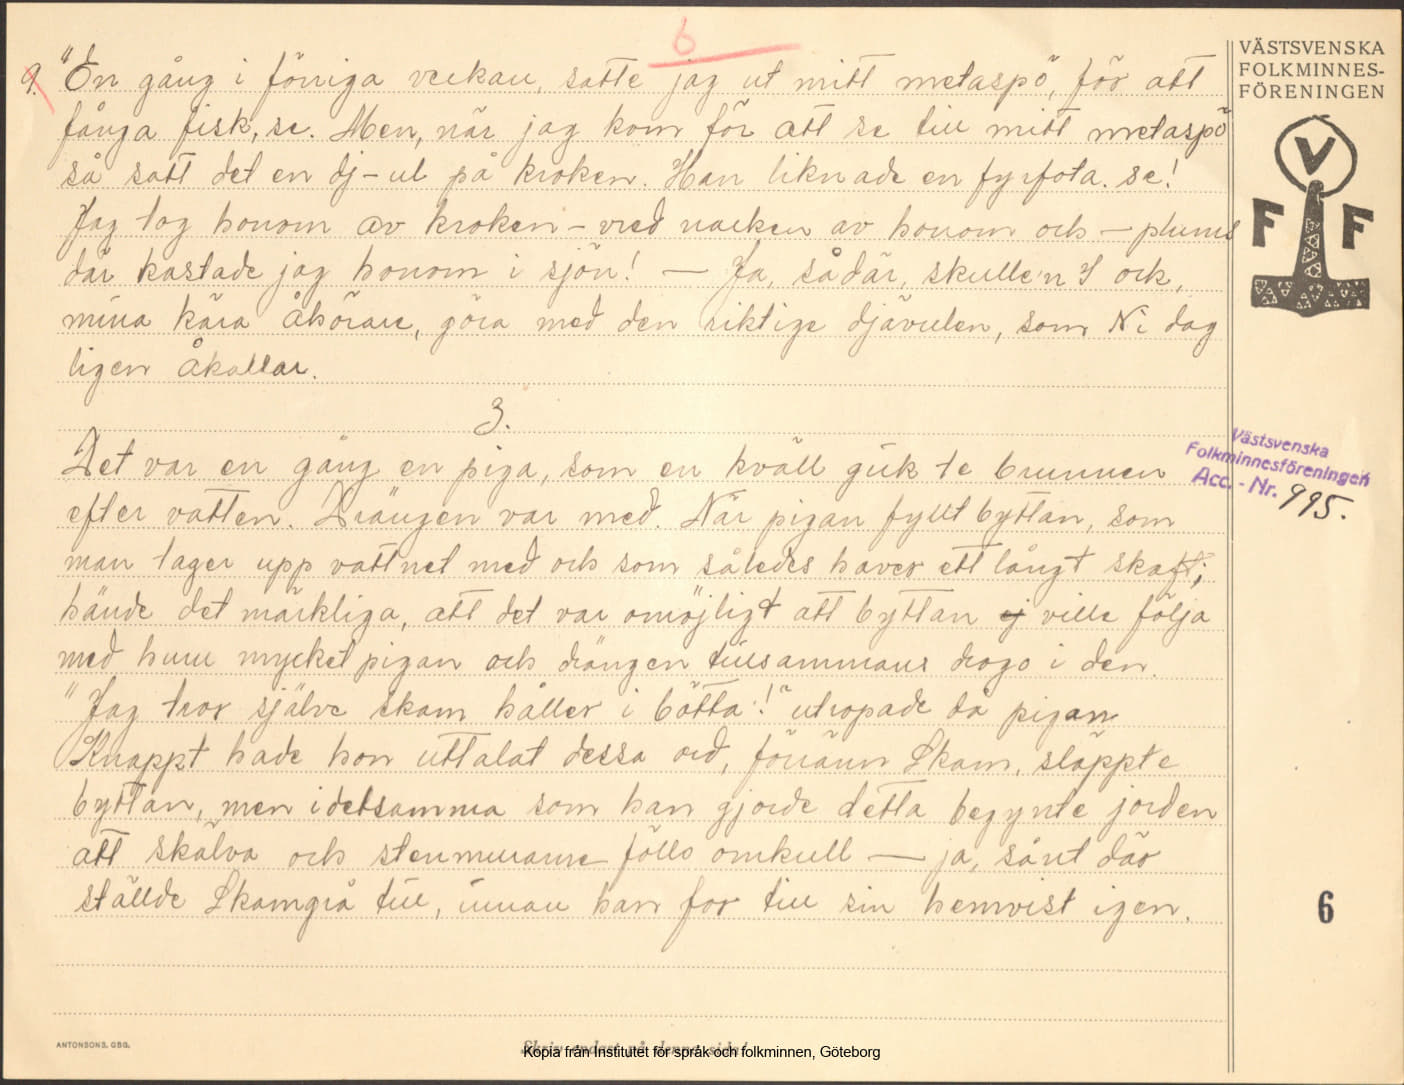 6
9. "En gång i förriga veckan, satte jag ut mitt metaspö, för att
fånga fisk, se. Men, när jag kom för att se till mitt metaspö
så satt det en dj-ul på kroken. Han liknade en fyrfota. se!
Jag tog honom av kroken - vred nacken av honom och - plums
där kastade jag honom i sjön! — Ja, sådär, skulle'n I ock,
mina kära åkörare, göra med den riktige djävulen, som Ni dag
ligen åkallar.
3.
Det var en gång en piga, som en kväll gick te brunnen
efter vatten. Drängen var med. När pigan fyllt byttan, som
man tager upp vattnet med och som således haver ett långt skaft;
hände det märkliga, att det var omöjligt att byttan ej ville följa
med huru mycket pigan och drängen tillsammans drogo i den.
"Jag tror själve skam håller i bötta"! utropade då pigan
Knappt hade hon uttalat dessa ord, förränn Skam, släppte
byttan, men idetsamma som han gjorde detta begynte jorden
att skälva och stenmurarne föllo omkull — ja, sånt där
ställde Skamgrå till, innan han for till sin hemvist igen.
VÄSTSVENSKA
FOLKMINNES-
FÖRENINGEN
V
F F
Västsvenska
Folkminnesföreningen
Acc. - Nr. 995.
6
ANTONSONS, GBG.
Skriv endast på denna sida!
Kopia från Institutet för språk och folkminnen, Göteborg